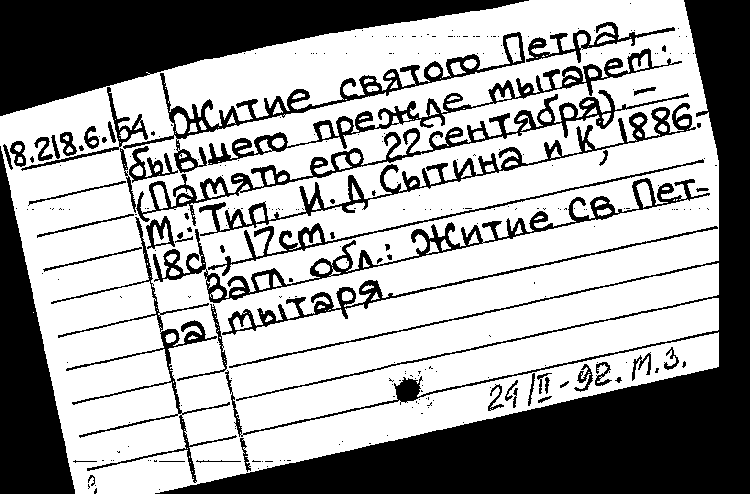 18.218.6.164. Житие святого Петра,
бывшего прежде мытарем:
(Память его 22 сентября). —
М.: Тип. И.Д.Сытина и К°, 1886.-
18с.; 17см.
Загл. обл.: Житие св. Пет-
ра мытаря.
24/II-92. М.З.